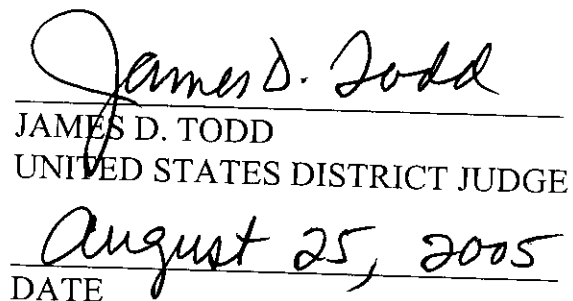 James D. Todd
JAMES D. TODD
UNITED STATES DISTRICT JUDGE
August 25, 2005
DATE